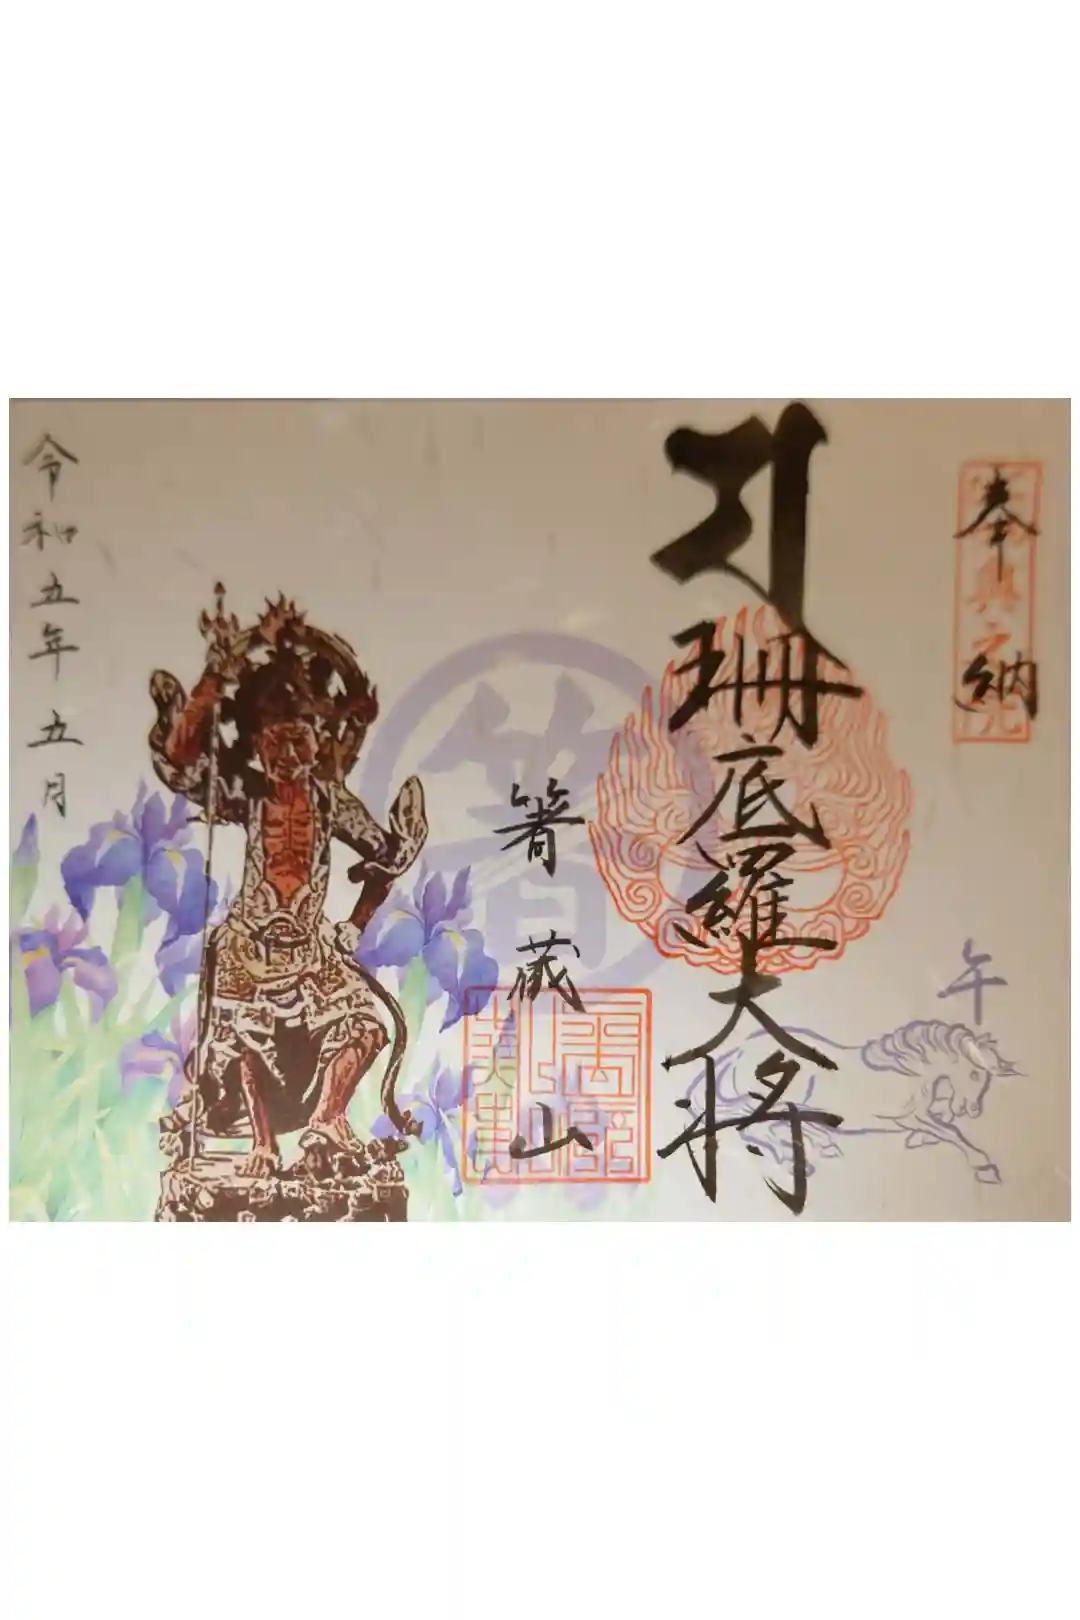 奉納
午
珊底羅大将
箸蔵山
箸
令和五年五月